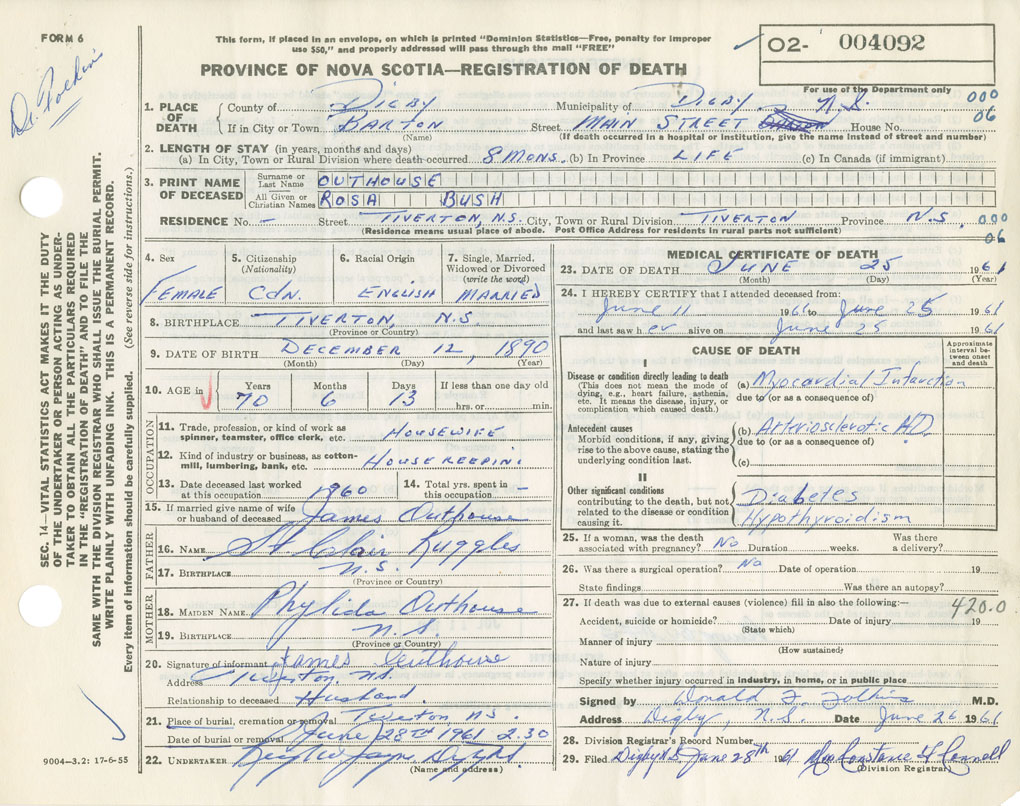 FORM 6
Dr. Folkins
This form, if placed in an envelope, on which is printed "Dominion Statistics—Free, penalty for improper
use $50," and properly addressed will pass through the mail "FREE"
PROVINCE OF NOVA SCOTIA—REGISTRATION OF DEATH
02- 004092
For use of the Department only
000
06
1. PLACE OF DEATH { County of DIGBY Municipality of DIGBY N.S.
If in City or Town BARTON (Name) Street MAIN STREET House No.
(If death occurred in a hospital or institution, give the name instead of street and number)
2. LENGTH OF STAY (in years, months and days)
(a) In City, Town or Rural Division where death occurred 8 MONS. (b) In Province LIFE (c) In Canada (if immigrant)
3. PRINT NAME OF DECEASED { Surname or Last Name OUTHOUSE
All Given or Christian Names ROSA BUSH
RESIDENCE No. – Street TIVERTON, N.S. City, Town or Rural Division TIVERTON Province N.S. 000
06
(Residence means usual place of abode. Post Office Address for residents in rural parts not sufficient)
4. Sex FEMALE
5. Citizenship (Nationality) CDN.
6. Racial Origin ENGLISH
7. Single, Married, Widowed or Divorced (write the word) MARRIED
8. BIRTHPLACE TIVERTON, N.S.
(Province or Country)
9. DATE OF BIRTH DECEMBER 12, 1890
(Month) (Day) (Year)
10. AGE in Years 70 Months 6 Days 13 If less than one day old hrs. or min.
OCCUPATION
11. Trade, profession, or kind of work as spinner, teamster, office clerk, etc. HOUSEWIFE
12. Kind of industry or business, as cotton-mill, lumbering, bank, etc. HOUSEKEEPING
13. Date deceased last worked at this occupation 1960
14. Total yrs. spent in this occupation –
15. If married give name of wife or husband of deceased James Outhouse
FATHER
16. NAME St. Clair Ruggles
17. BIRTHPLACE N.S.
(Province or Country)
MOTHER
18. MAIDEN NAME Phylida Outhouse
19. BIRTHPLACE N.S.
(Province or Country)
20. Signature of informant James Outhouse
Address Tiverton, N.S.
Relationship to deceased Husband
21. Place of burial, cremation or removal Tiverton N.S.
Date of burial or removal June 28TH 1961 2.30
22. UNDERTAKER Digby
(Name and address)
MEDICAL CERTIFICATE OF DEATH
23. DATE OF DEATH JUNE 25 1961
(Month) (Day) (Year)
24. I HEREBY CERTIFY that I attended deceased from:
June 11 1961 to June 25 1961
and last saw her alive on June 25 1961
CAUSE OF DEATH
Approximate interval between onset and death
I
Disease or condition directly leading to death
(This does not mean the mode of dying, e.g., heart failure, asthenia, etc. It means the disease, injury, or complication which caused death.)
(a) Myocardial Infarction
due to (or as a consequence of)
Antecedent causes
Morbid conditions, if any, giving rise to the above cause, stating the underlying condition last.
(b) Arteriosclerotic H.D.
due to (or as a consequence of)
(c)
II
Other significant conditions
contributing to the death, but not related to the disease or condition causing it.
Diabetes
Hypothyroidism
25. If a woman, was the death associated with pregnancy? No Duration weeks. Was there a delivery?
26. Was there a surgical operation? No Date of operation 19
State findings Was there an autopsy?
27. If death was due to external causes (violence) fill in also the following:— 420.0
Accident, suicide or homicide? Date of injury 19
(State which)
Manner of injury
(How sustained)
Nature of injury
Specify whether injury occurred in industry, in home, or in public place
Signed by Donald F. Folkins M.D.
Address Digby, N.S. Date June 26 1961
28. Division Registrar's Record Number
29. Filed Digby N.S. June 28th 1961 Mrs Constance F Connell
(Division Registrar)
SEC. 14—VITAL STATISTICS ACT MAKES IT THE DUTY
OF THE UNDERTAKER OR PERSON ACTING AS UNDER-
TAKER TO OBTAIN ALL THE PARTICULARS REQUIRED
IN THE "REGISTRATION OF DEATH" AND TO FILE THE
SAME WITH THE DIVISION REGISTRAR WHO SHALL ISSUE THE BURIAL PERMIT.
WRITE PLAINLY WITH UNFADING INK. THIS IS A PERMANENT RECORD.
Every item of information should be carefully supplied. (See reverse side for instructions.)
9004—3.2: 17-6-55